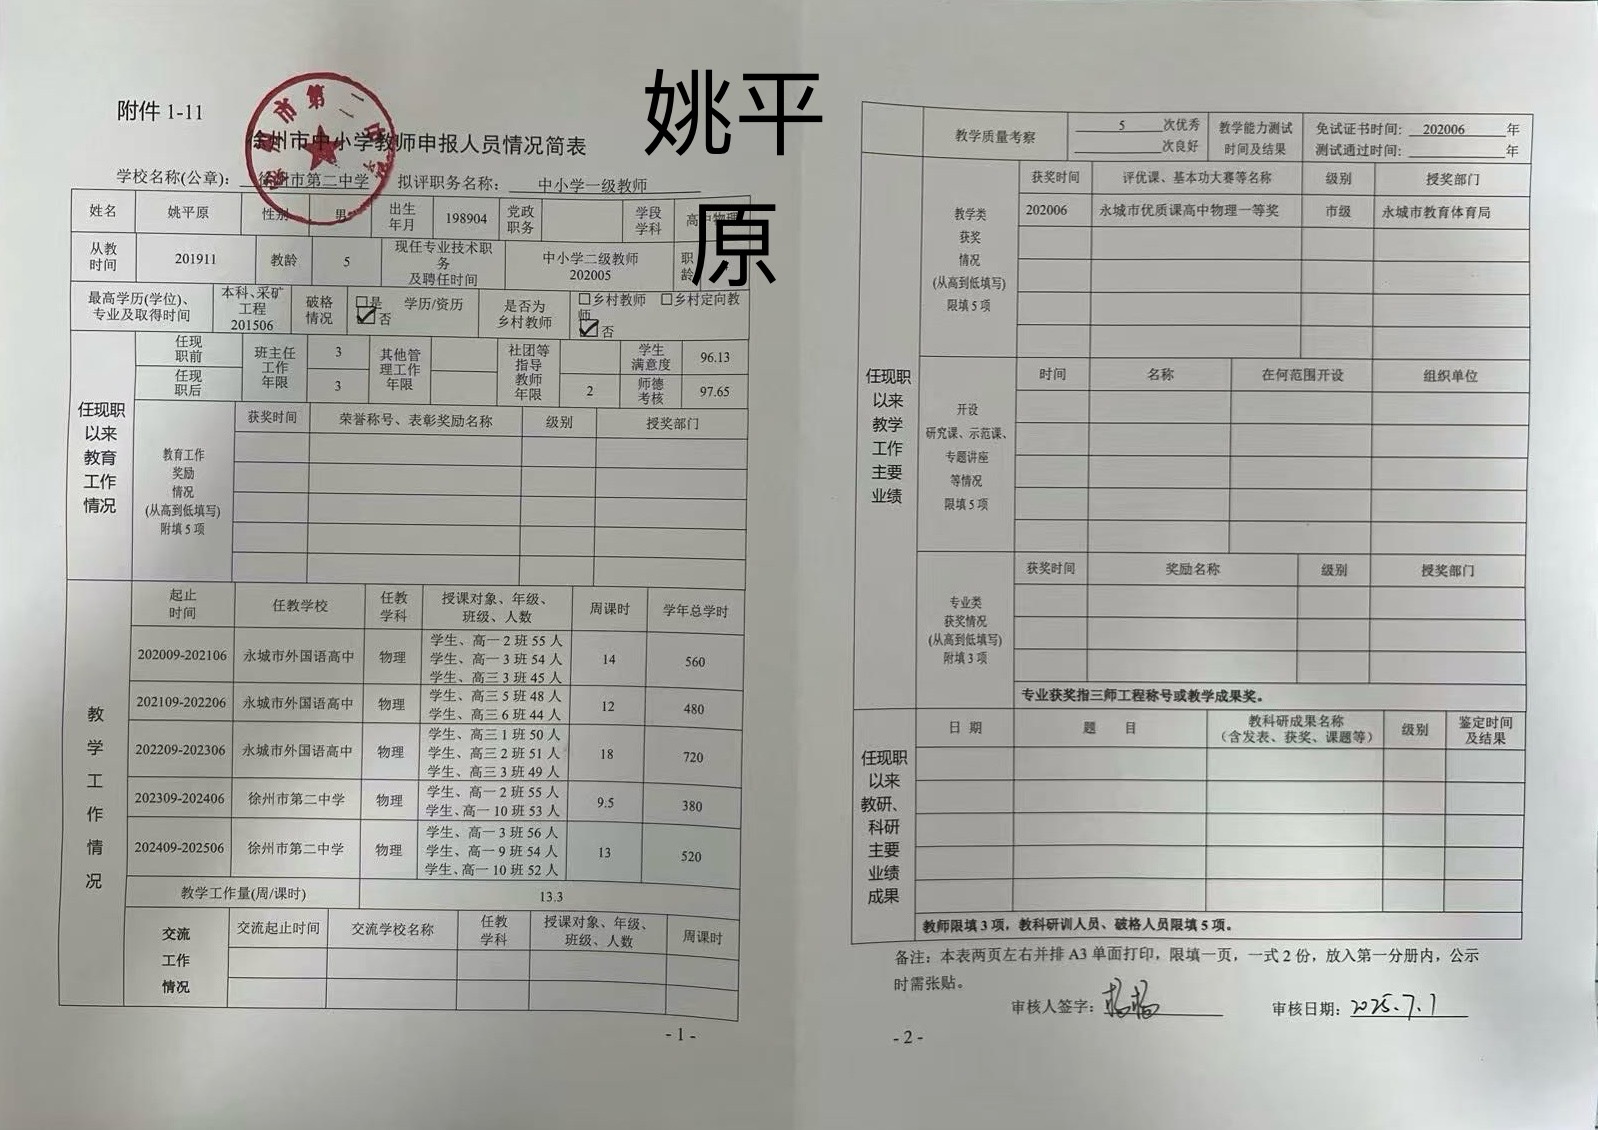 姚平原
附件 1-11
徐州市中小学教师申报人员情况简表
学校名称(公章): 徐州市第二中学 拟评职务名称: 中小学一级教师
姓名 姚平原 性别 男 出生年月 198904 党政职务 学段学科 高中物理
从教时间 201911 教龄 5 现任专业技术职务及聘任时间 中小学二级教师 202005 职龄
最高学历(学位)、专业及取得时间 本科、采矿工程 201506 破格情况 □是 ☑否 学历/资历 是否为乡村教师 □乡村教师 □乡村定向教师 ☑否
任现职以来教育工作情况
任现职前 班主任工作年限 3 其他管理工作年限 社团等指导教师年限 学生满意度 96.13
任现职后 3 2 师德考核 97.65
教育工作奖励情况(从高到低填写)附填 5 项
获奖时间 荣誉称号、表彰奖励名称 级别 授奖部门
教学工作情况
起止时间 任教学校 任教学科 授课对象、年级、班级、人数 周课时 学年总学时
202009-202106 永城市外国语高中 物理 学生、高一 2 班 55 人 学生、高一 3 班 54 人 学生、高三 3 班 45 人 14 560
202109-202206 永城市外国语高中 物理 学生、高三 5 班 48 人 学生、高三 6 班 44 人 12 480
202209-202306 永城市外国语高中 物理 学生、高三 1 班 50 人 学生、高三 2 班 51 人 学生、高三 3 班 49 人 18 720
202309-202406 徐州市第二中学 物理 学生、高一 2 班 55 人 学生、高一 10 班 53 人 9.5 380
202409-202506 徐州市第二中学 物理 学生、高一 3 班 56 人 学生、高一 9 班 54 人 学生、高一 10 班 52 人 13 520
教学工作量(周/课时) 13.3
交流工作情况 交流起止时间 交流学校名称 任教学科 授课对象、年级、班级、人数 周课时
- 1 -
任现职以来教学工作主要业绩
教学质量考察 5 次优秀 次良好 教学能力测试时间及结果 免试证书时间: 202006 年 测试通过时间: 年
教学类获奖情况(从高到低填写)限填 5 项
获奖时间 评优课、基本功大赛等名称 级别 授奖部门
202006 永城市优质课高中物理一等奖 市级 永城市教育体育局
开设研究课、示范课、专题讲座等情况限填 5 项
时间 名称 在何范围开设 组织单位
专业类获奖情况(从高到低填写)附填 3 项
获奖时间 奖励名称 级别 授奖部门
专业获奖指三师工程称号或教学成果奖。
任现职以来教研、科研主要业绩成果
日 期 题 目 教科研成果名称(含发表、获奖、课题等) 级别 鉴定时间及结果
教师限填 3 项，教科研训人员、破格人员限填 5 项。
备注：本表两页左右并排 A3 单面打印，限填一页，一式 2 份，放入第一分册内，公示
时需张贴。
审核人签字: 审核日期: 2025.7.1
- 2 -